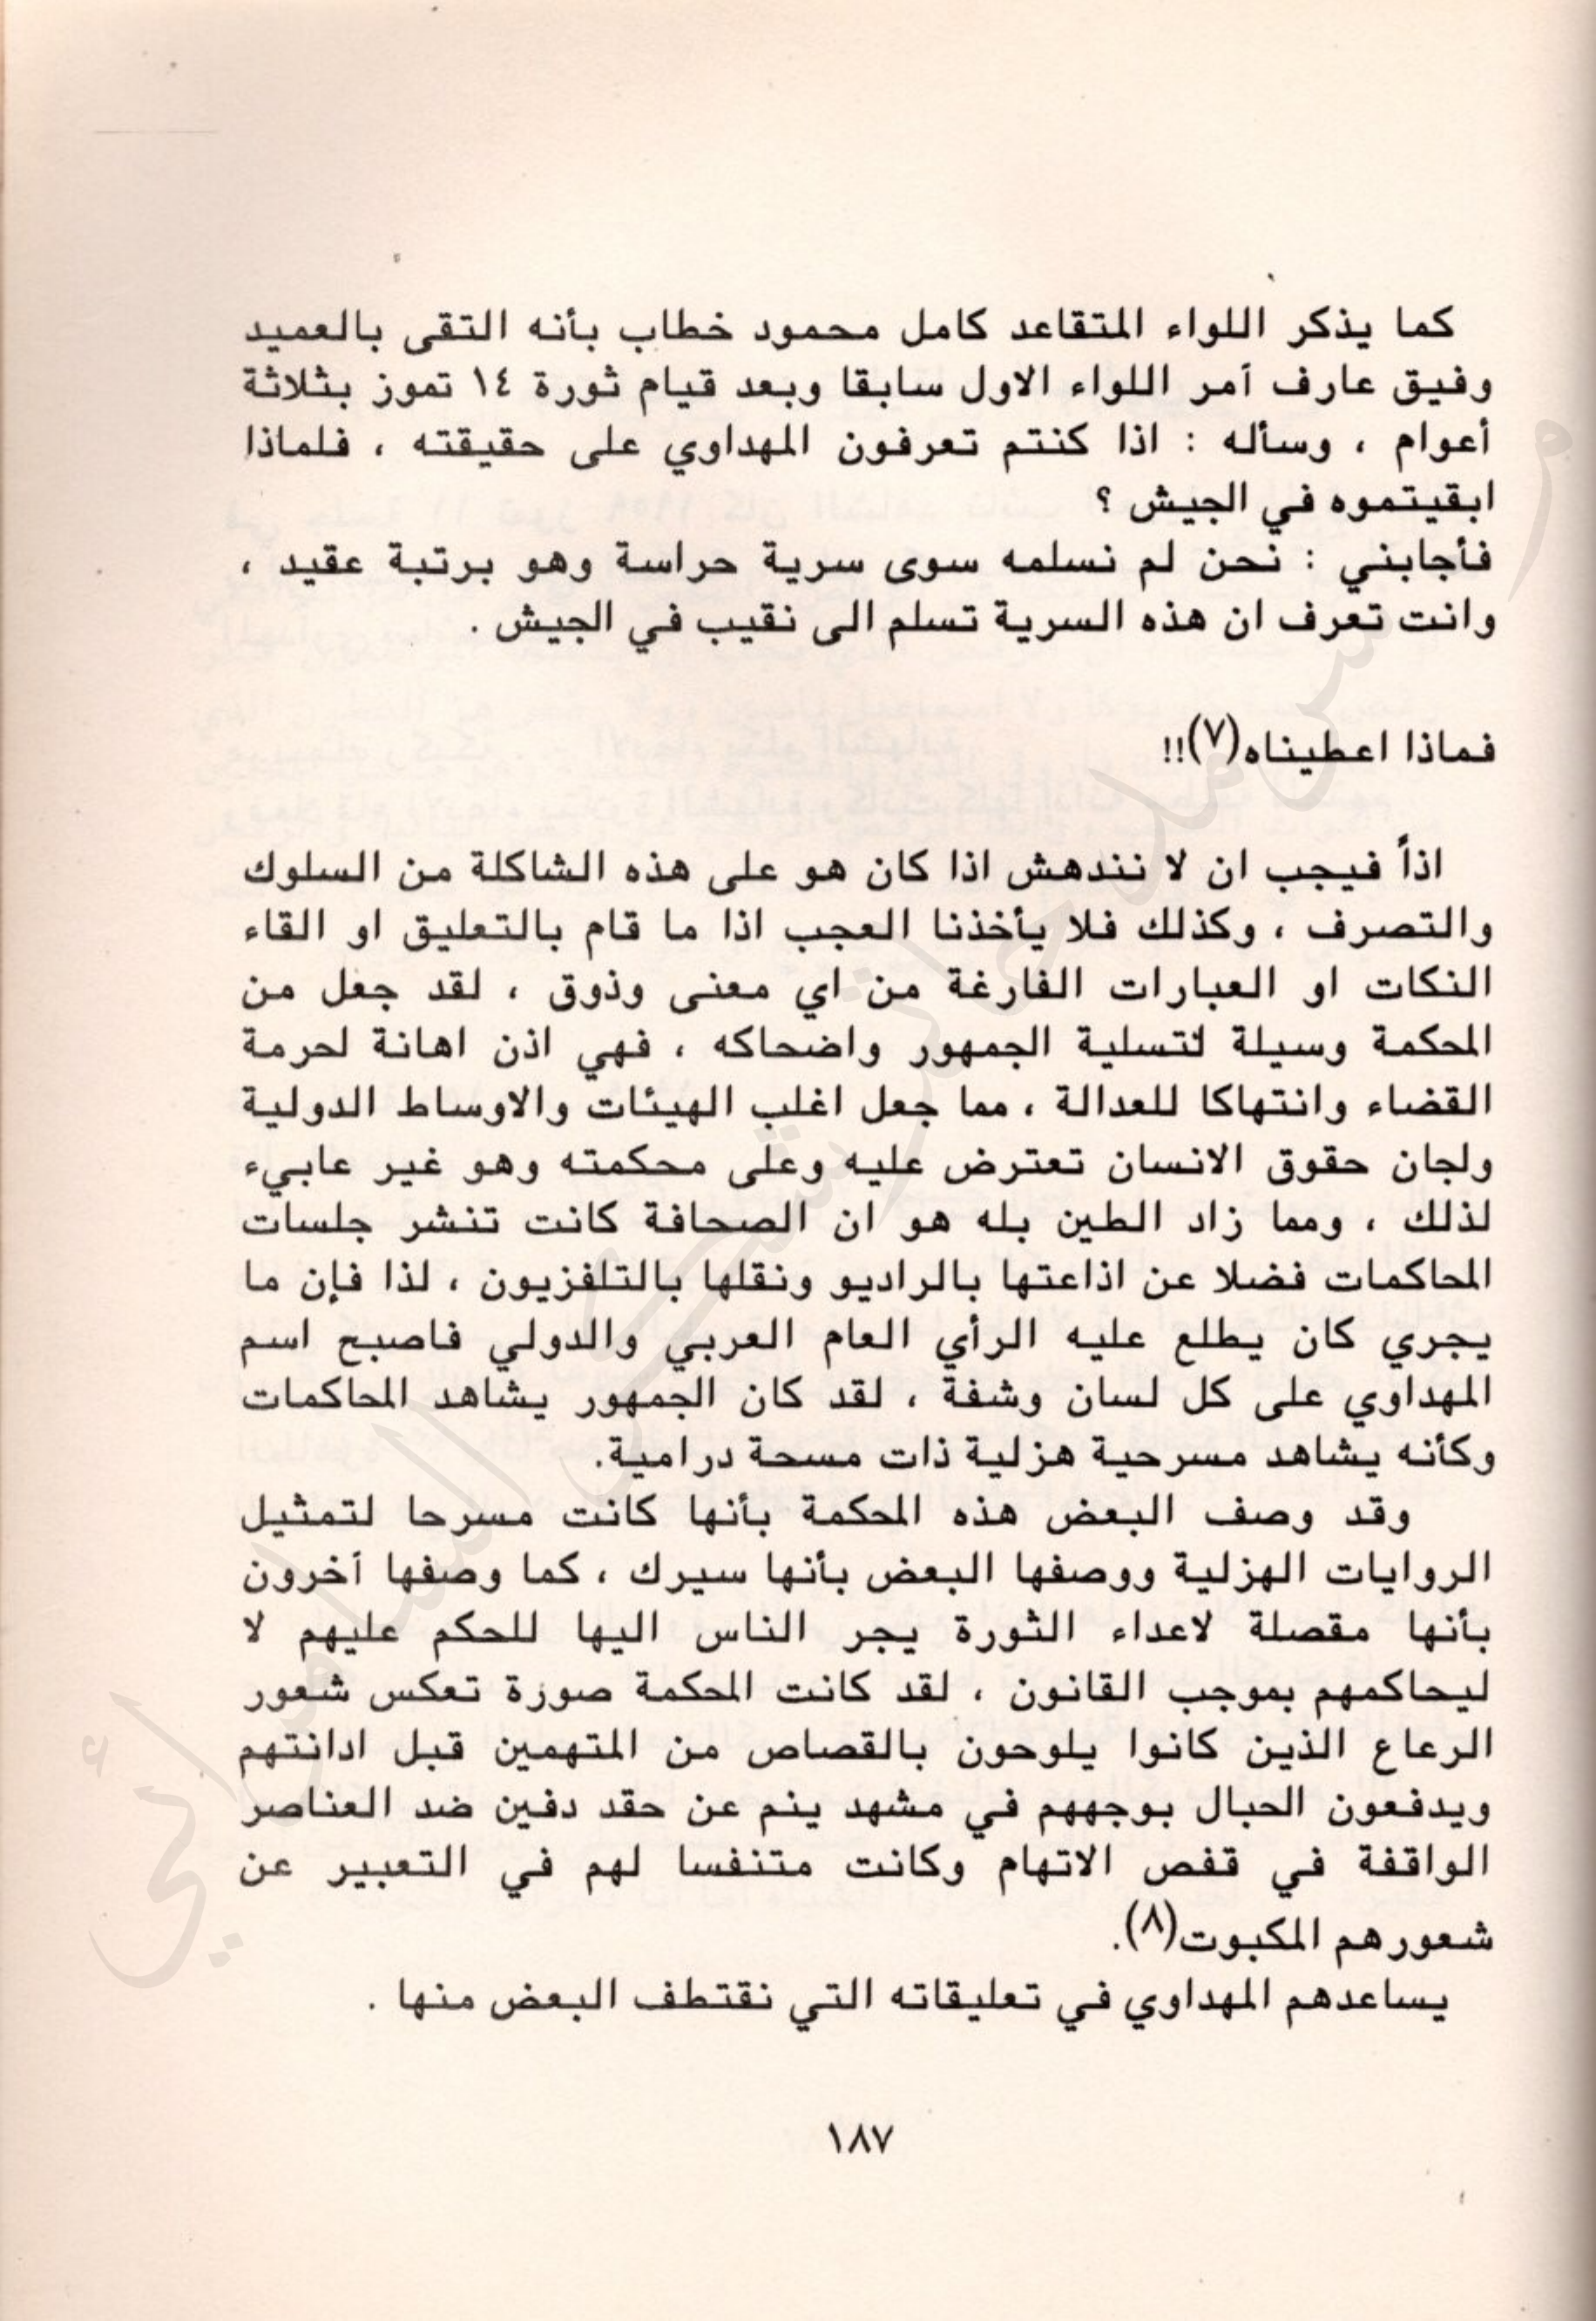 كما يذكر اللواء المتقاعد كامل محمود خطاب بأنه التقى بالعميد
وفيق عارف آمر اللواء الاول سابقا وبعد قيام ثورة ١٤ تموز بثلاثة
أعوام ، وسأله : اذا كنتم تعرفون المهداوي على حقيقته ، فلماذا
ابقيتموه في الجيش ؟
فأجابني : نحن لم نسلمه سوى سرية حراسة وهو برتبة عقيد ،
وانت تعرف ان هذه السرية تسلم الى نقيب في الجيش .
فماذا اعطيناه(٧)!!
اذاً فيجب ان لا نندهش اذا كان هو على هذه الشاكلة من السلوك
والتصرف ، وكذلك فلا يأخذنا العجب اذا ما قام بالتعليق او القاء
النكات او العبارات الفارغة من اي معنى وذوق ، لقد جعل من
المحكمة وسيلة لتسلية الجمهور واضحاكه ، فهي اذن اهانة لحرمة
القضاء وانتهاكا للعدالة ، مما جعل اغلب الهيئات والاوساط الدولية
ولجان حقوق الانسان تعترض عليه وعلى محكمته وهو غير عابيء
لذلك ، ومما زاد الطين بله هو ان الصحافة كانت تنشر جلسات
المحاكمات فضلا عن اذاعتها بالراديو ونقلها بالتلفزيون ، لذا فإن ما
يجري كان يطلع عليه الرأي العام العربي والدولي فاصبح اسم
المهداوي على كل لسان وشفة ، لقد كان الجمهور يشاهد المحاكمات
وكأنه يشاهد مسرحية هزلية ذات مسحة درامية.
وقد وصف البعض هذه المحكمة بأنها كانت مسرحا لتمثيل
الروايات الهزلية ووصفها البعض بأنها سيرك ، كما وصفها آخرون
بأنها مقصلة لاعداء الثورة يجر الناس اليها للحكم عليهم لا
ليحاكمهم بموجب القانون ، لقد كانت المحكمة صورة تعكس شعور
الرعاع الذين كانوا يلوحون بالقصاص من المتهمين قبل ادانتهم
ويدفعون الحبال بوجههم في مشهد ينم عن حقد دفين ضد العناصر
الواقفة في قفص الاتهام وكانت متنفسا لهم في التعبير عن
شعورهم المكبوت(٨).
يساعدهم المهداوي في تعليقاته التي نقتطف البعض منها .
١٨٧